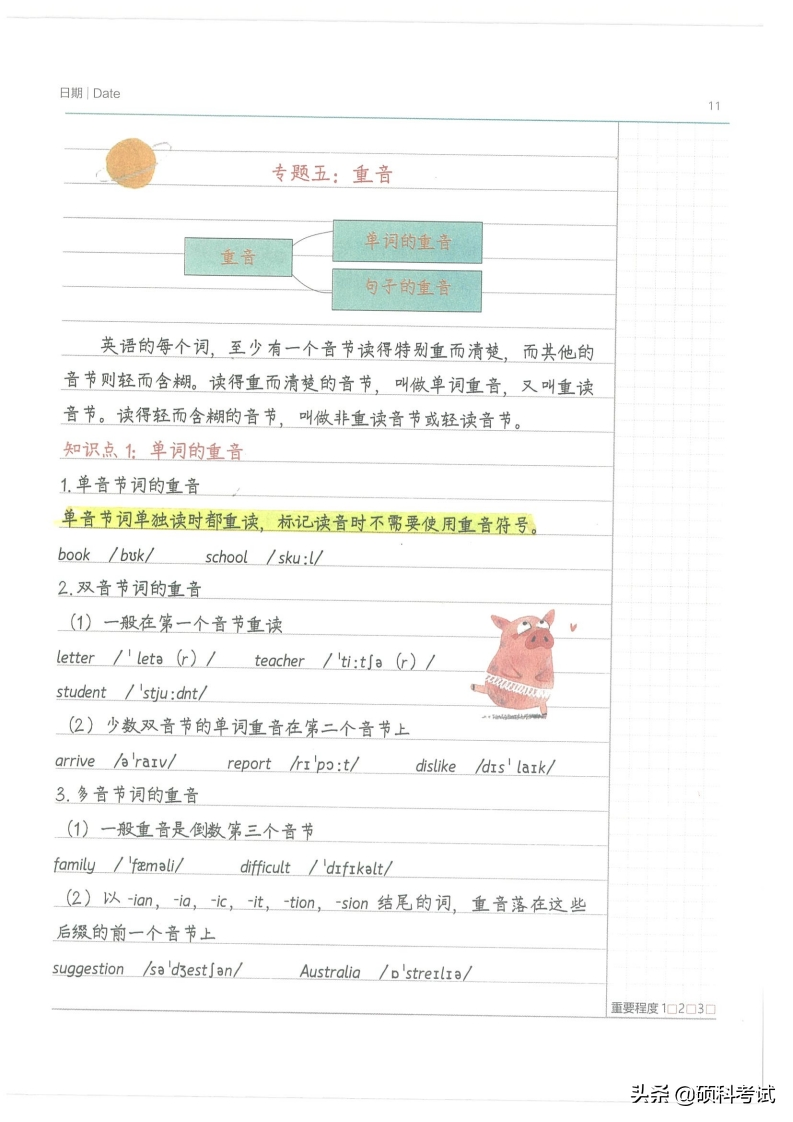 日期 | Date
11
专题五：重音
重音
单词的重音
句子的重音
英语的每个词，至少有一个音节读得特别重而清楚，而其他的
音节则轻而含糊。读得重而清楚的音节，叫做单词重音，又叫重读
音节。读得轻而含糊的音节，叫做非重读音节或轻读音节。
知识点1：单词的重音
1.单音节词的重音
单音节词单独读时都重读，标记读音时不需要使用重音符号。
book /bʊk/ school /skuːl/
2.双音节词的重音
（1）一般在第一个音节重读
letter /ˈletə（r）/ teacher /ˈtiːtʃə（r）/
student /ˈstjuːdnt/
（2）少数双音节的单词重音在第二个音节上
arrive /əˈraɪv/ report /rɪˈpɔːt/ dislike /dɪsˈlaɪk/
3.多音节词的重音
（1）一般重音是倒数第三个音节
family /ˈfæməli/ difficult /ˈdɪfɪkəlt/
（2）以 -ian，-ia，-ic，-it，-tion，-sion 结尾的词，重音落在这些
后缀的前一个音节上
suggestion /səˈdʒestʃən/ Australia /ɒˈstreɪlɪə/
重要程度 1□2□3□
头条 @硕科考试